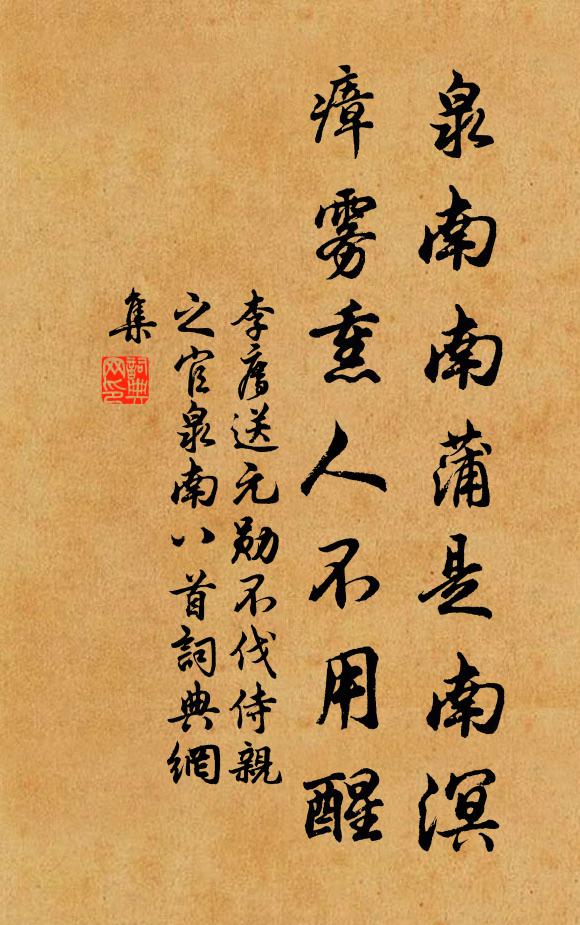 泉南南蒲是南溟
瘴雾熏人不用醒
李廌送元勋不伐侍親
之官泉南八首詞典網
集
詞典
网印